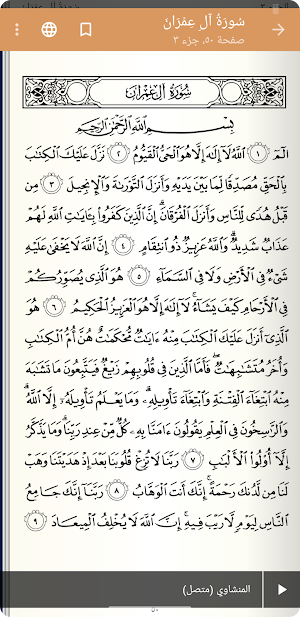 سُورَةُ آلِ عِمْرَانَ
صفحة ٥٠، جزء ٣
سُورَةُ آلِ عِمْرَانَ
بِسْمِ ٱللَّهِ ٱلرَّحْمَٰنِ ٱلرَّحِيمِ
الٓمٓ ١ ٱللَّهُ لَآ إِلَٰهَ إِلَّا هُوَ ٱلْحَىُّ ٱلْقَيُّومُ ٢ نَزَّلَ عَلَيْكَ ٱلْكِتَٰبَ
بِٱلْحَقِّ مُصَدِّقًا لِّمَا بَيْنَ يَدَيْهِ وَأَنزَلَ ٱلتَّوْرَىٰةَ وَٱلْإِنجِيلَ ٣ مِن
قَبْلُ هُدًى لِّلنَّاسِ وَأَنزَلَ ٱلْفُرْقَانَ ۗ إِنَّ ٱلَّذِينَ كَفَرُوا۟ بِـَٔايَٰتِ ٱللَّهِ لَهُمْ
عَذَابٌ شَدِيدٌ ۗ وَٱللَّهُ عَزِيزٌ ذُو ٱنتِقَامٍ ٤ إِنَّ ٱللَّهَ لَا يَخْفَىٰ عَلَيْهِ
شَىْءٌ فِى ٱلْأَرْضِ وَلَا فِى ٱلسَّمَآءِ ٥ هُوَ ٱلَّذِى يُصَوِّرُكُمْ
فِى ٱلْأَرْحَامِ كَيْفَ يَشَآءُ ۚ لَآ إِلَٰهَ إِلَّا هُوَ ٱلْعَزِيزُ ٱلْحَكِيمُ ٦ هُوَ
ٱلَّذِىٓ أَنزَلَ عَلَيْكَ ٱلْكِتَٰبَ مِنْهُ ءَايَٰتٌ مُّحْكَمَٰتٌ هُنَّ أُمُّ ٱلْكِتَٰبِ
وَأُخَرُ مُتَشَٰبِهَٰتٌ ۖ فَأَمَّا ٱلَّذِينَ فِى قُلُوبِهِمْ زَيْغٌ فَيَتَّبِعُونَ مَا تَشَٰبَهَ
مِنْهُ ٱبْتِغَآءَ ٱلْفِتْنَةِ وَٱبْتِغَآءَ تَأْوِيلِهِۦ ۗ وَمَا يَعْلَمُ تَأْوِيلَهُۥٓ إِلَّا ٱللَّهُ ۗ
وَٱلرَّٰسِخُونَ فِى ٱلْعِلْمِ يَقُولُونَ ءَامَنَّا بِهِۦ كُلٌّ مِّنْ عِندِ رَبِّنَا ۗ وَمَا يَذَّكَّرُ
إِلَّآ أُو۟لُوا۟ ٱلْأَلْبَٰبِ ٧ رَبَّنَا لَا تُزِغْ قُلُوبَنَا بَعْدَ إِذْ هَدَيْتَنَا وَهَبْ
لَنَا مِن لَّدُنكَ رَحْمَةً ۚ إِنَّكَ أَنتَ ٱلْوَهَّابُ ٨ رَبَّنَآ إِنَّكَ جَامِعُ
ٱلنَّاسِ لِيَوْمٍ لَّا رَيْبَ فِيهِ ۚ إِنَّ ٱللَّهَ لَا يُخْلِفُ ٱلْمِيعَادَ ٩
المنشاوي (متصل)